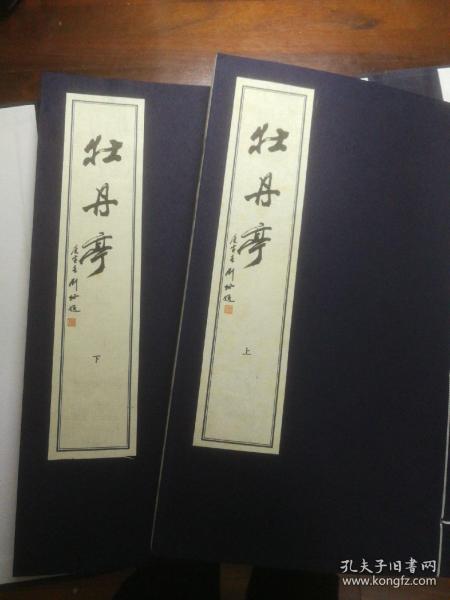 牡丹亭
下
牡丹亭
上
孔夫子旧书网
www.kongfz.com